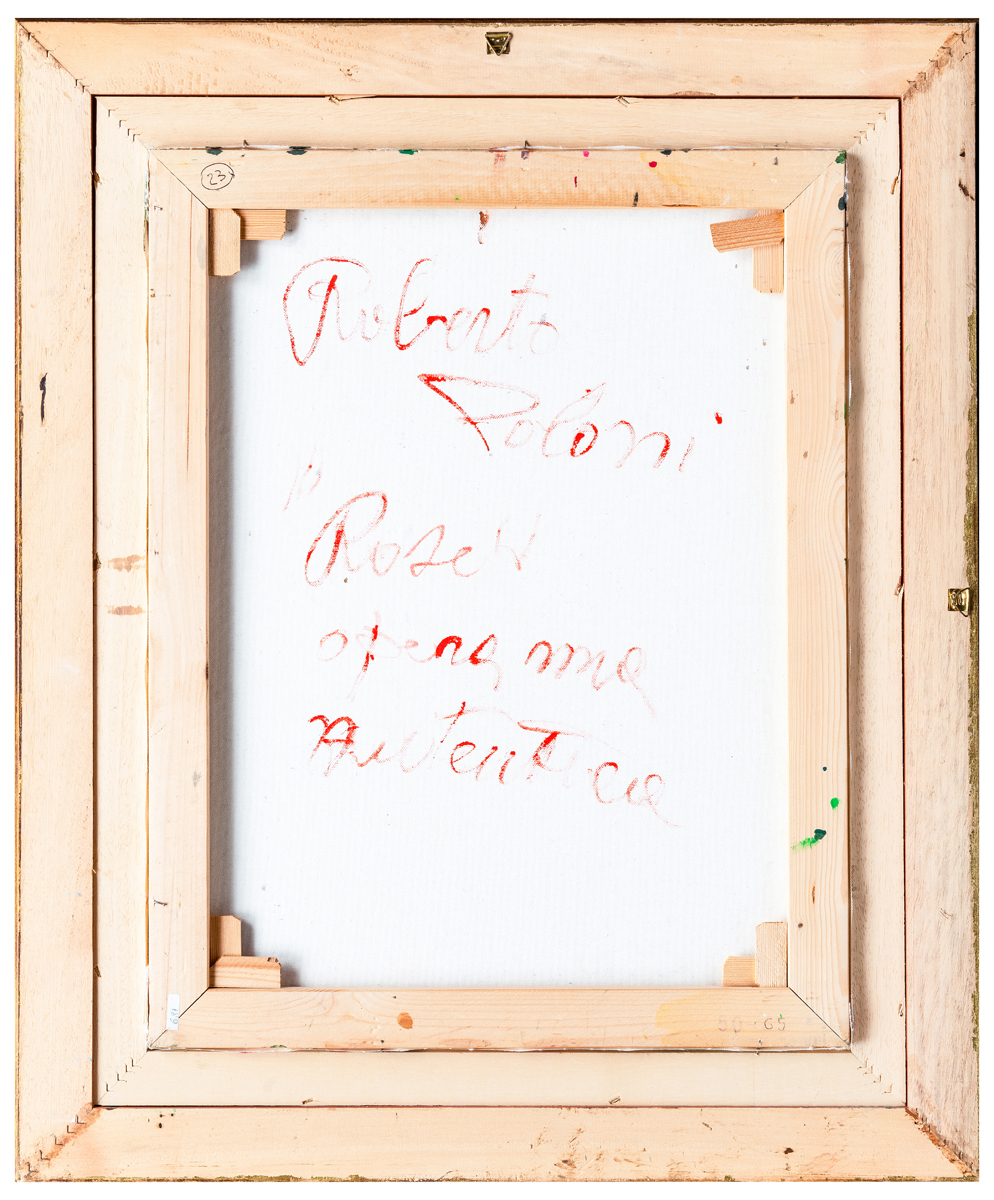 23
Roberto
Poloni
"Rose"
opera mia
Autentica
50·65